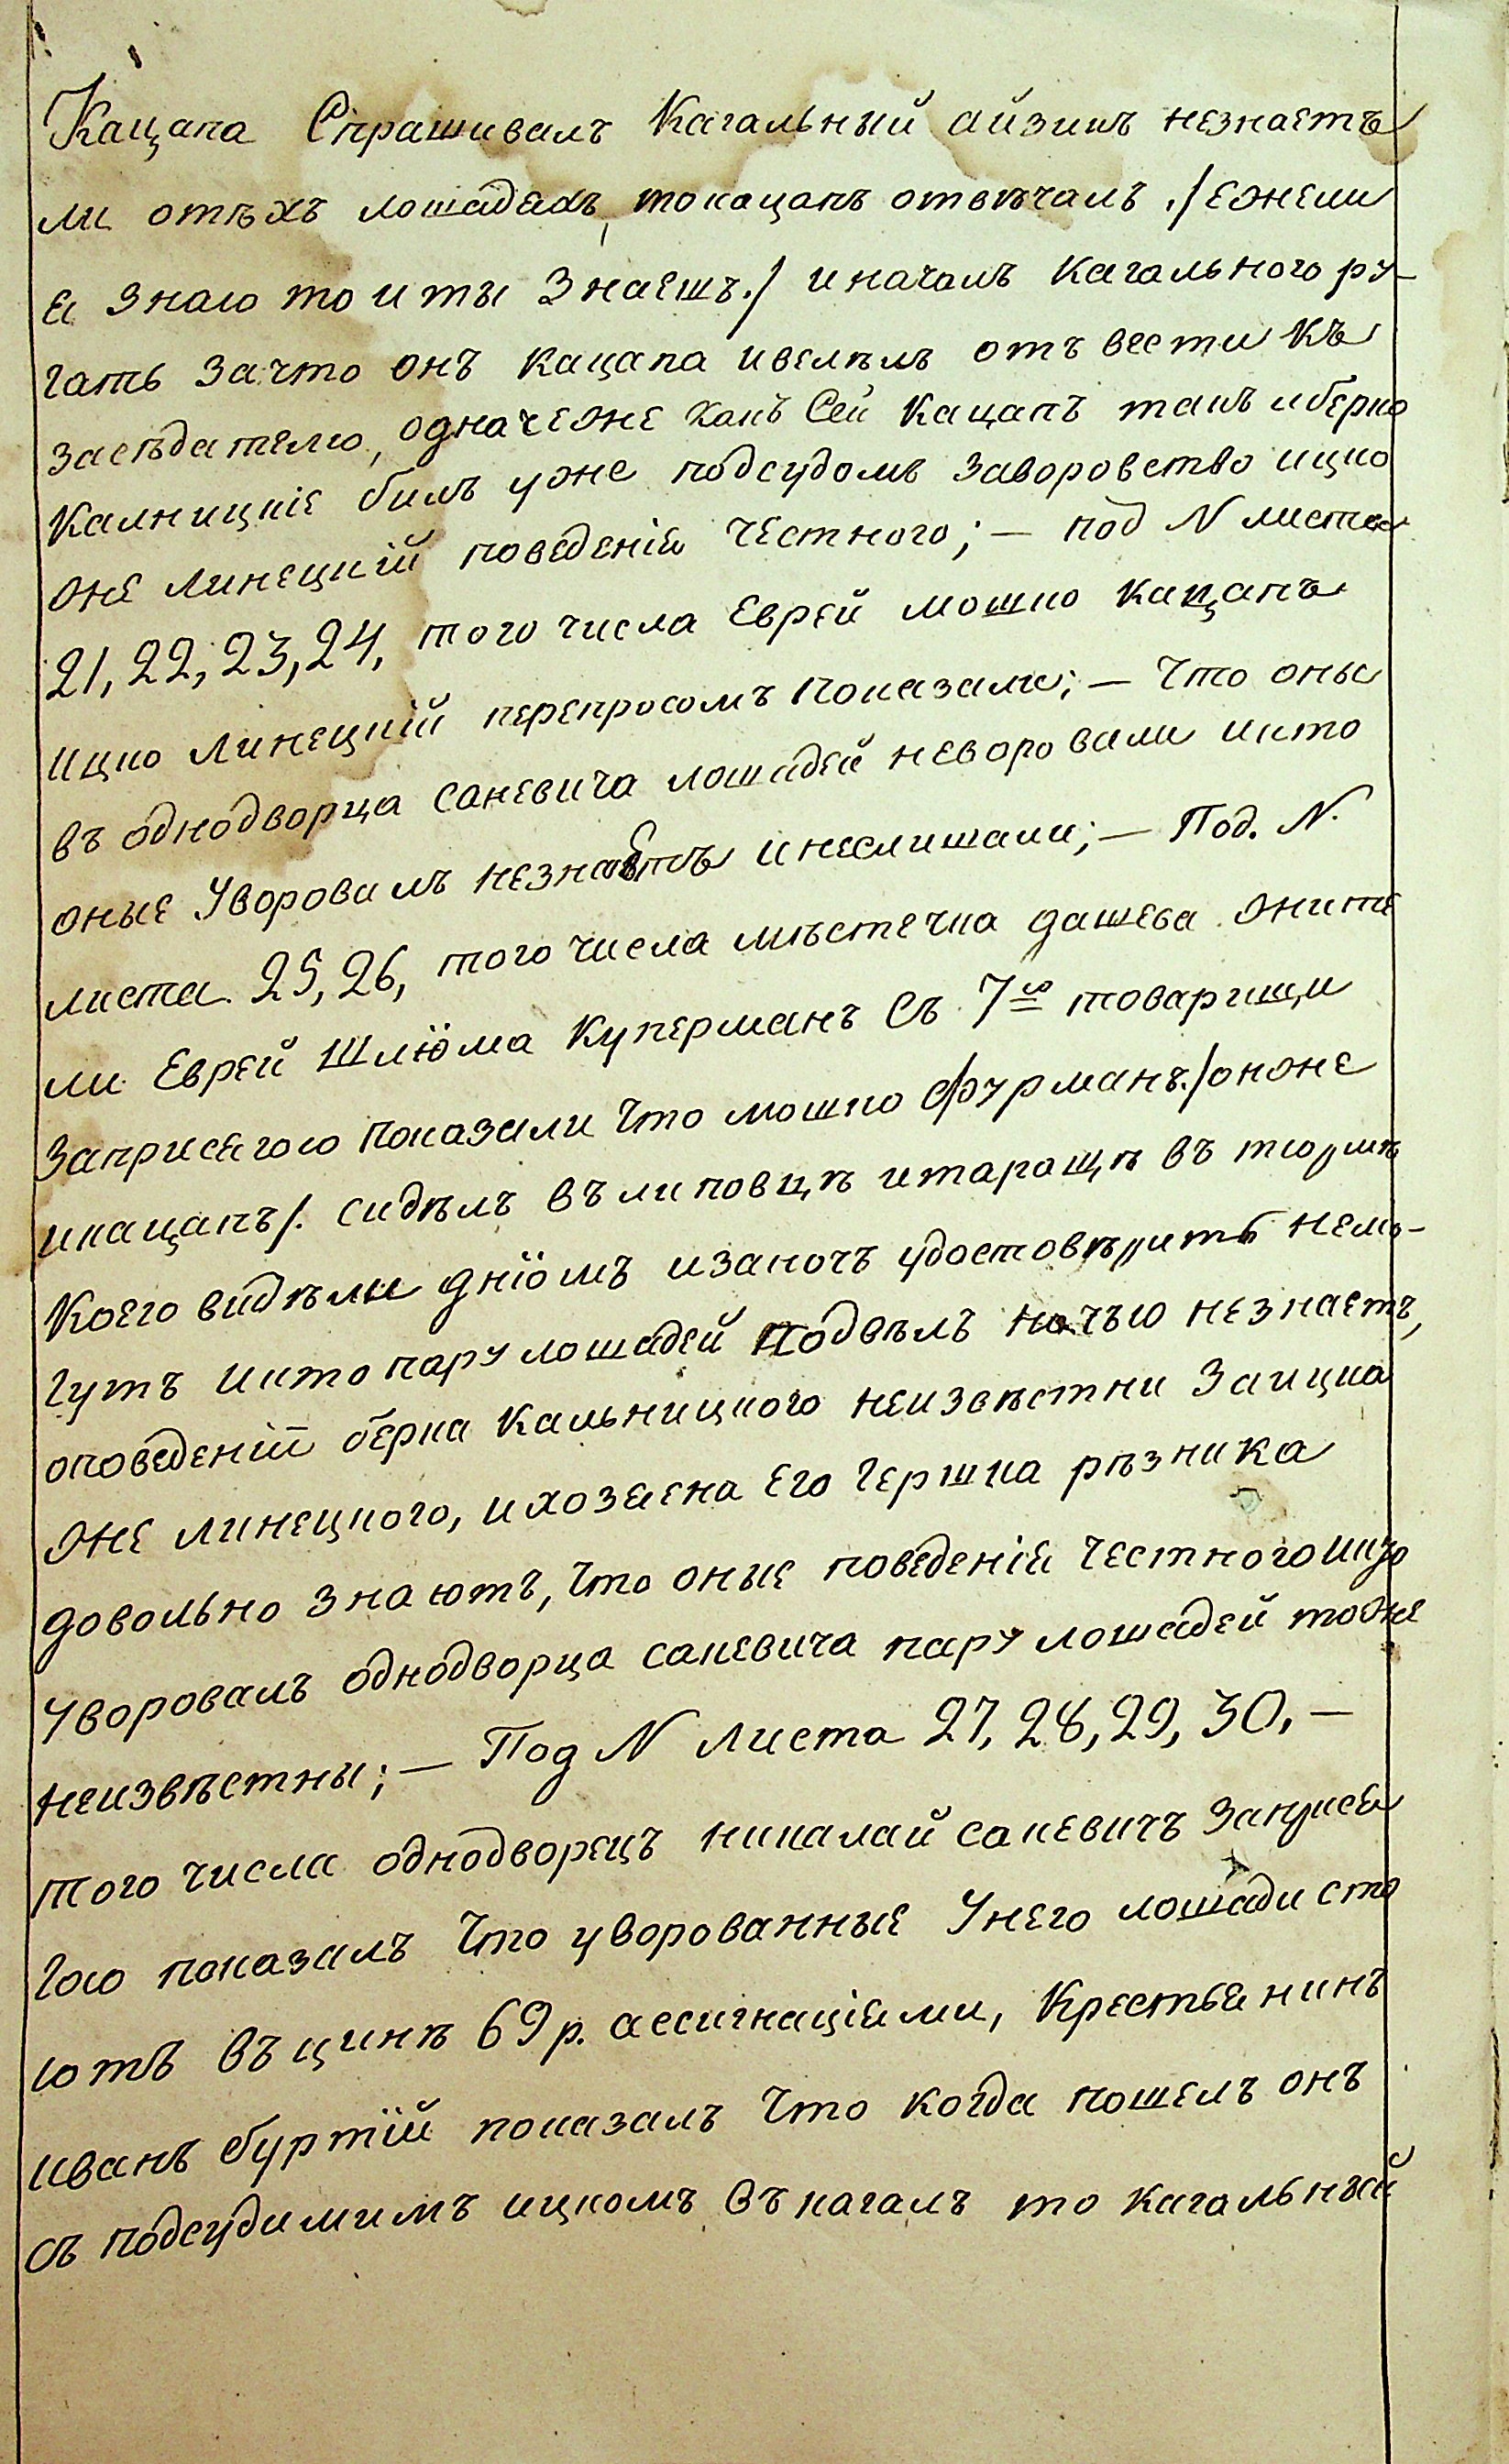 Кацапа Спрашивалъ Кагальный айзикъ незнаетъ
ли отѣхъ лошадяхъ, токацапъ отвѣчалъ ./ ежели
я знаю то и ты Знаешъ./ иначалъ Кагального ру-
гать зачто онъ кацапа ивелѣлъ отъ вести Къ
засѣдателю, одначеже какъ Сей Кацапъ такъ иберко
Калницкіе билъ уже подсудомъ Заворовство ицко
же линецкій поведенія честного; — под N листа
21, 22, 23, 24, того числа Еврей мошко Кацапъ
ицко линецкій перепросомъ показали; — Что оны
въ однодворца саневича лошадей неворовали икто
оные Уворовалъ незнаетъ инеслишали; — Под. N.
листа 25, 26, того числа мѣстечка дашева жите
ли Еврей Шлюма Куперманъ Съ 7ю товарищи
Заприсягою показали Что мошко Фурманъ./онже
икацапъ/. сидѣлъ въ липовцѣ итаращѣ въ тюрмѣ
Коего видѣли днiомъ изаночъ удостовѣрить немо-
гутъ икто пару лошадей подвѣлъ ночъю незнаетъ,
оповеденій берка Кальницкого неизвѣстни Заицка
же линецкого, ихозяена Его Гершка рѣзника
довольно знаютъ, Что оные поведенія честного икто
Уворовалъ однодворца саневича пару лошадей тоже
неизвѣстны; — Под N листа 27, 28, 29, 30, —
того числа однодворецъ николай саневичъ Заприся
гою показалъ Что уворованные Унего лошади сто
ютъ въ цинѣ 69 р. ассигнаціями, Крестьянинъ
иванъ буртій показалъ Что когда пошелъ онъ
съ подсудимимъ ицкомъ въ кагалъ то кагальный